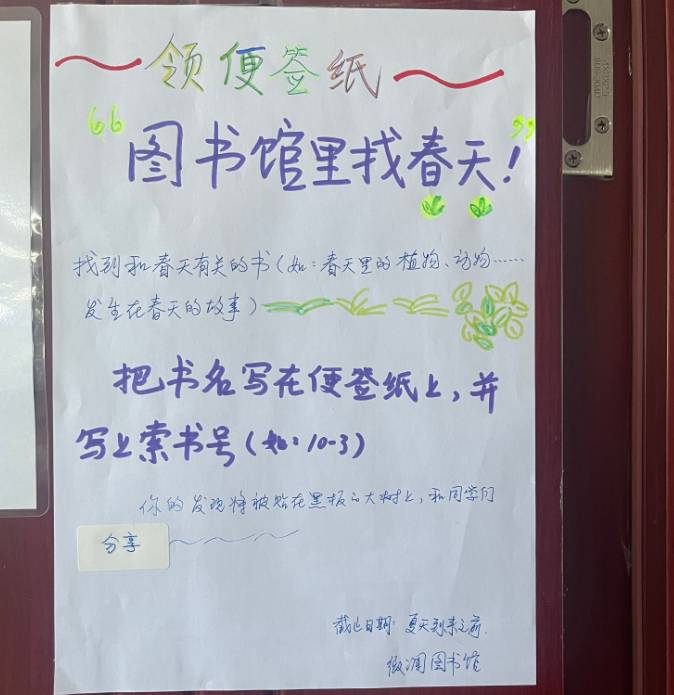 领便签纸
“图书馆里找春天！”
找到和春天有关的书（如：春天里的植物、动物……
发生在春天的故事）
把书名写在便签纸上，并
写上索书号（如：10-3）
你的发现将被贴在黑板的大树上，和同学们
分享
截止日期：夏天到来之前
图书馆